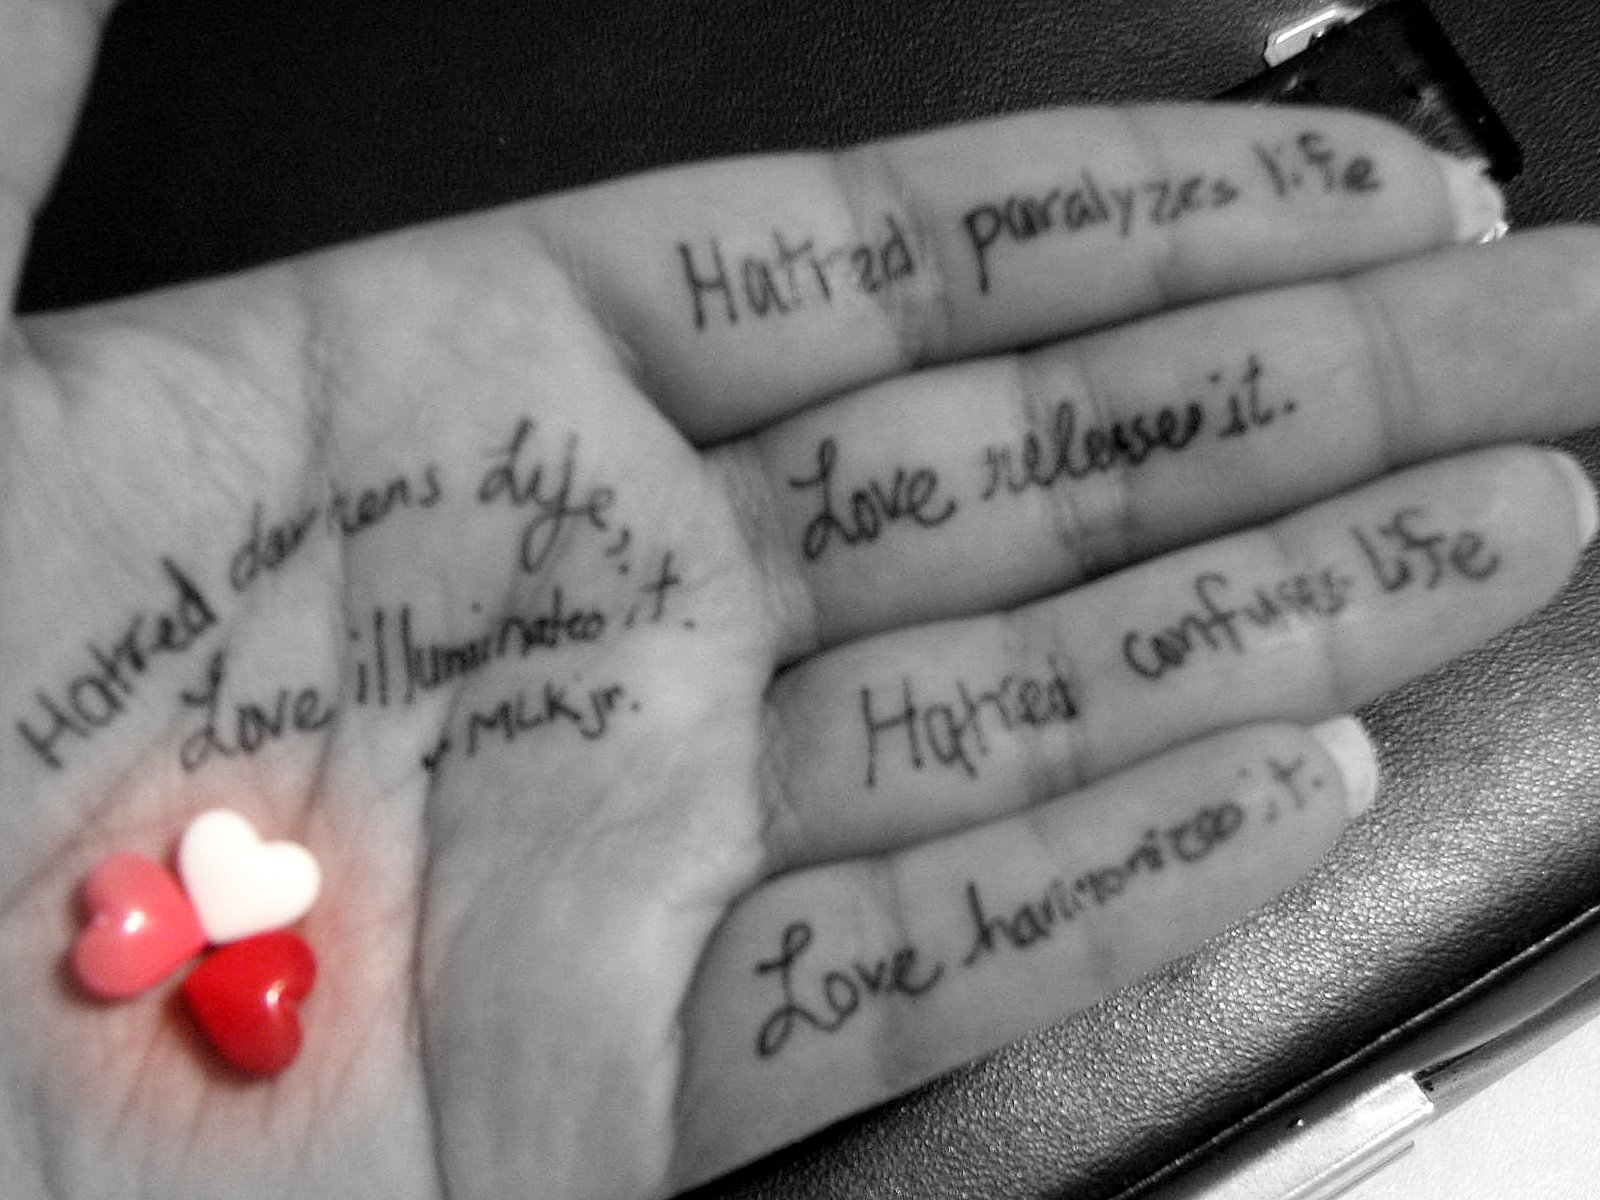 Hatred paralyzes life
Love releases it.
Hatred confuses life
Love harmonizes it.
Hatred darkens Life,
Love illuminates it.
MLK jr.